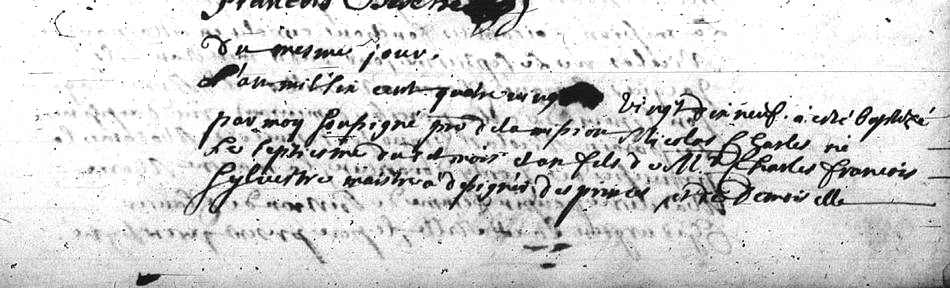 François
Du mesme jour.
L'an mil six cent quatre vingt vingt dix neuf. a esté baptizé
par moy soussigné pre de la mission Nicolas Charles né
le septiesme dudt mois et an fils de Mr Charles François
Sylvestre maistre a designer des princes et de Demoiselle